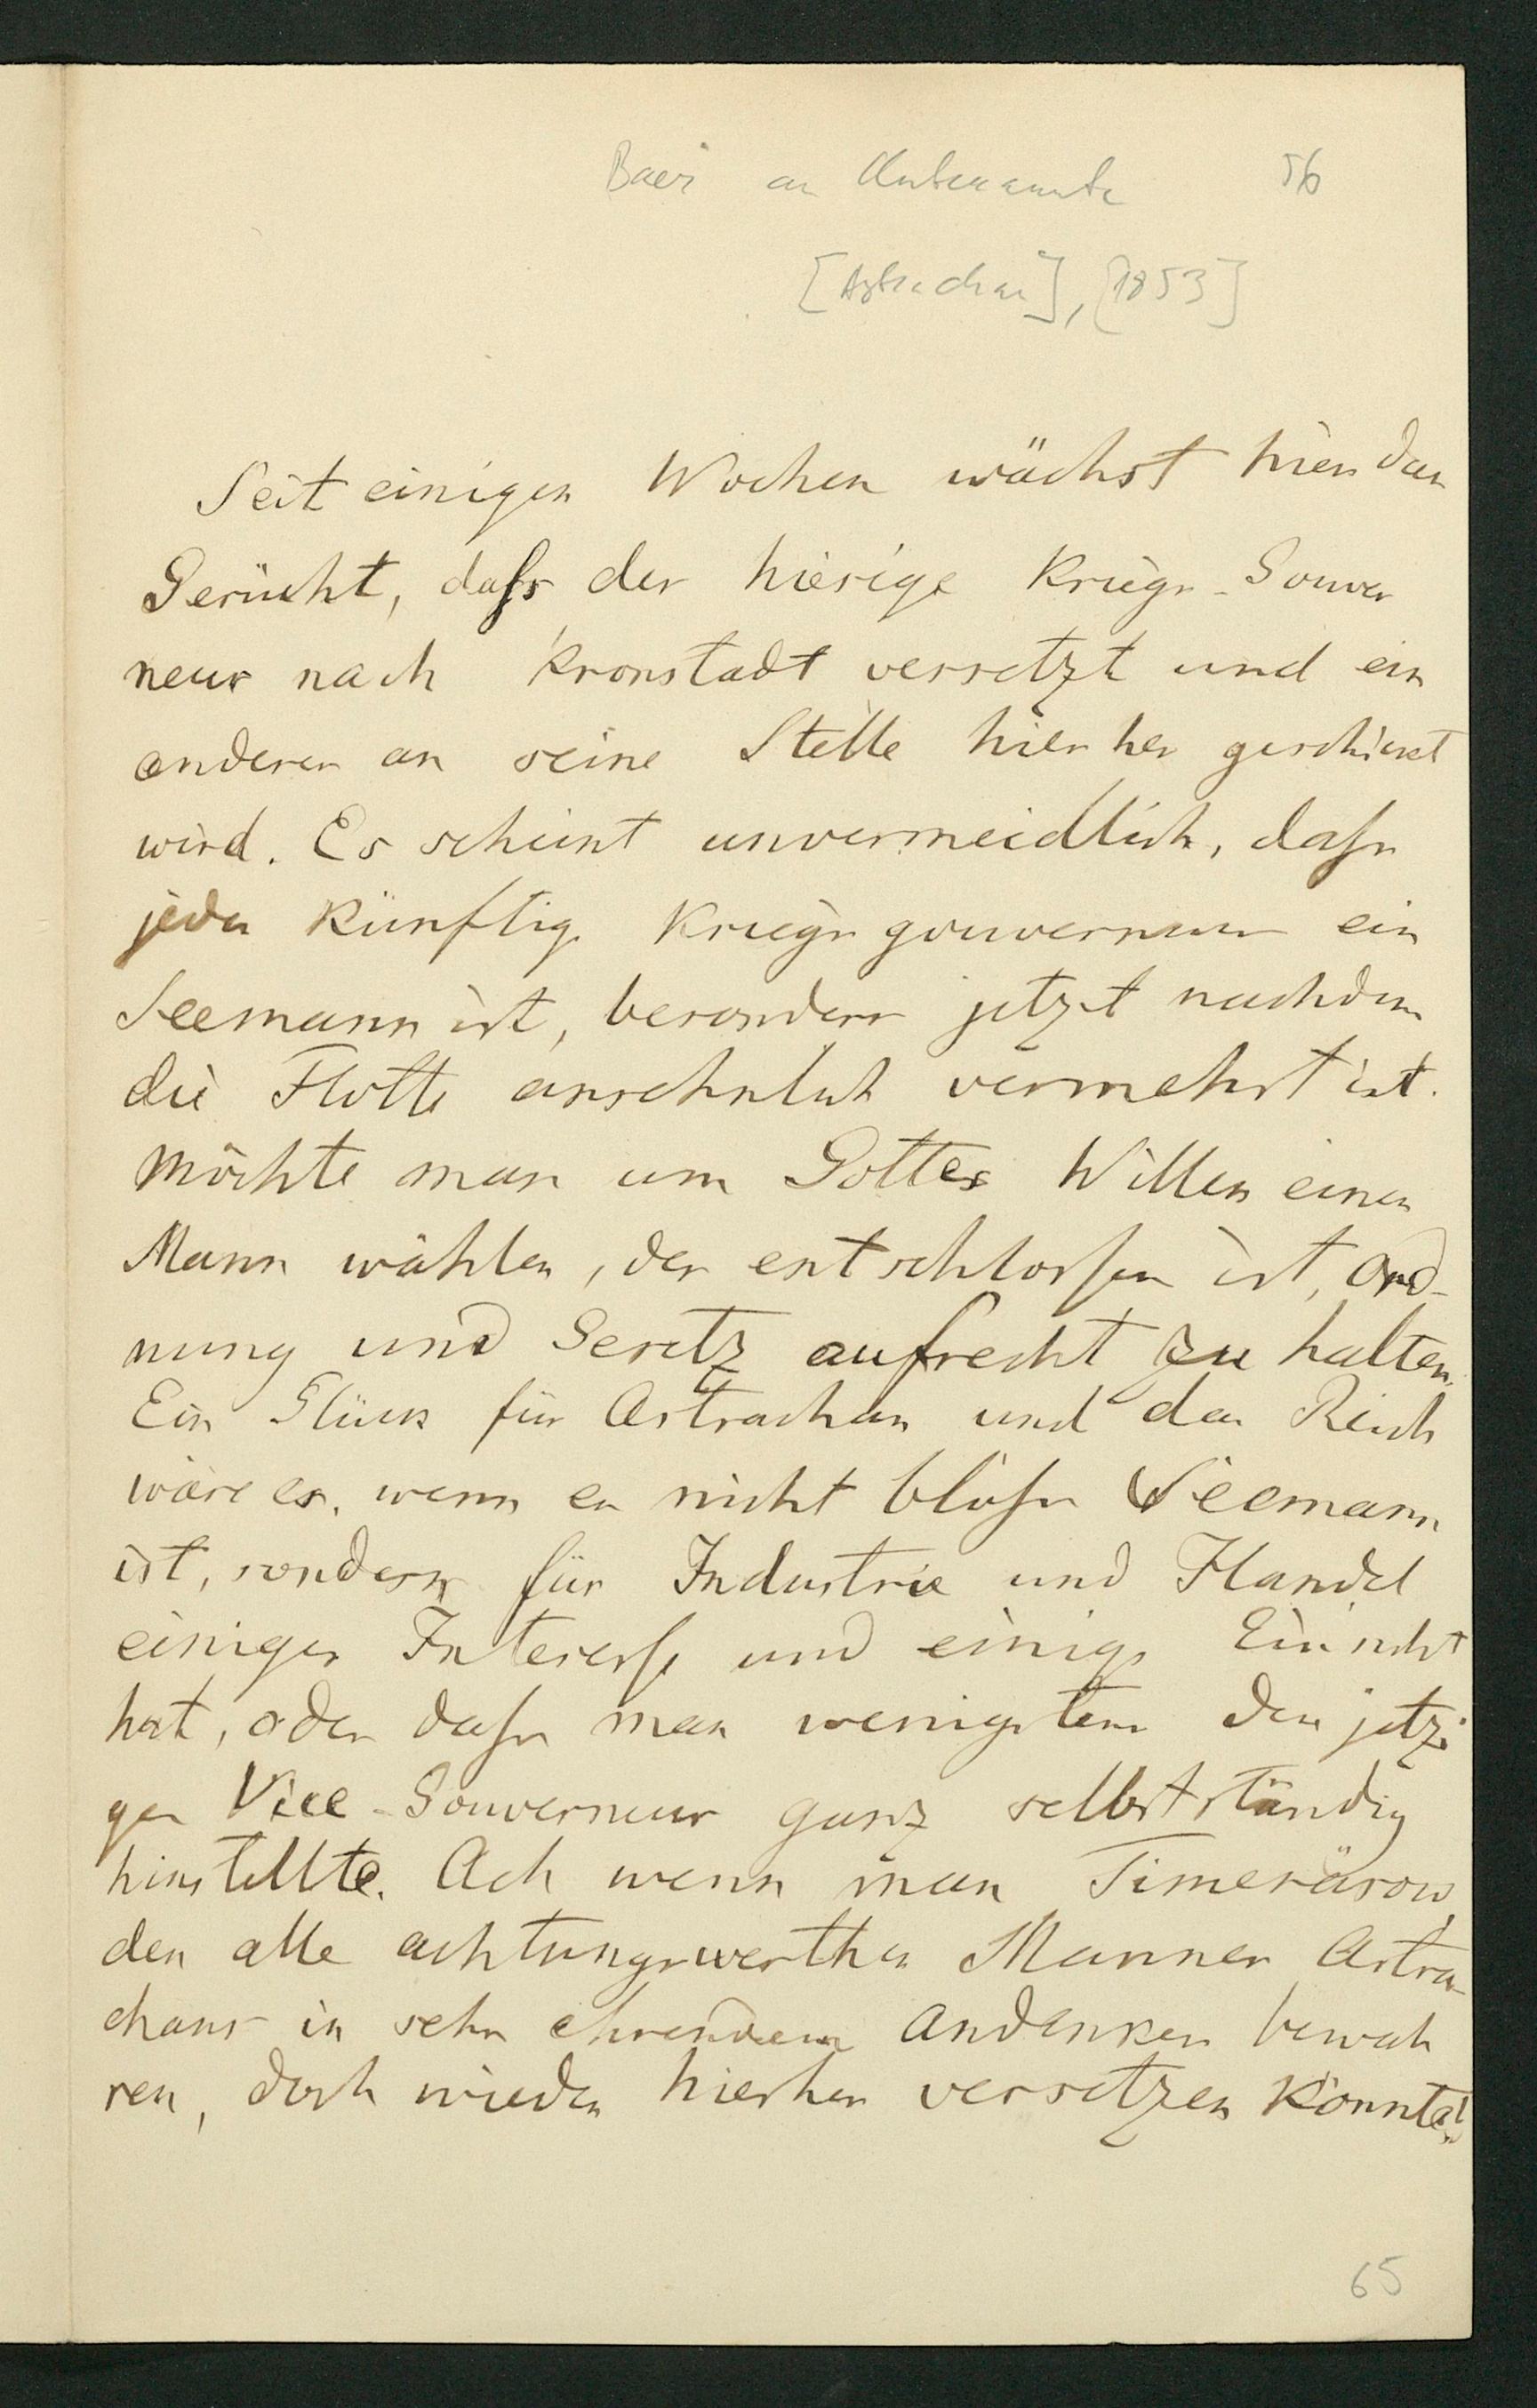 Baer an Unbekannte 56
[Astrachan], [1853]
Seit einigen Wochen wächst hier das
Gerücht, dafs der hiesige Kriegs-Gouver
neur nach Kronstadt versetzt und ein
anderer an seine Stelle hierher geschickt
wird. Es scheint unvermeidlich, dafs
jeder künftige Kriegsgouverneur ein
Seemann ist, besonders jetzt nachdem
die Flotte ansehnlich vermehrt ist.
Möchte man um Gottes Willen einen
Mann wählen, der entschlossen ist, Ord-
nung und Gesetz aufrecht zu halten.
Ein Glück für Astrachan und das Reich
wäre es, wenn er nicht blofs Seemann
ist, sondern für Industrie und Handel
einiges Interesse und einige Einsicht
hat, oder dafs man wenigstens den jetzi
gen Vice-Gouverneur ganz selbstständig
hinstellte. Ach wenn man Timeräsow,
den alle achtungswerthen Männer Astra-
chans in sehr ehrendem Andenken bewah
ren, doch wieder hierher versetzen könnte!
65